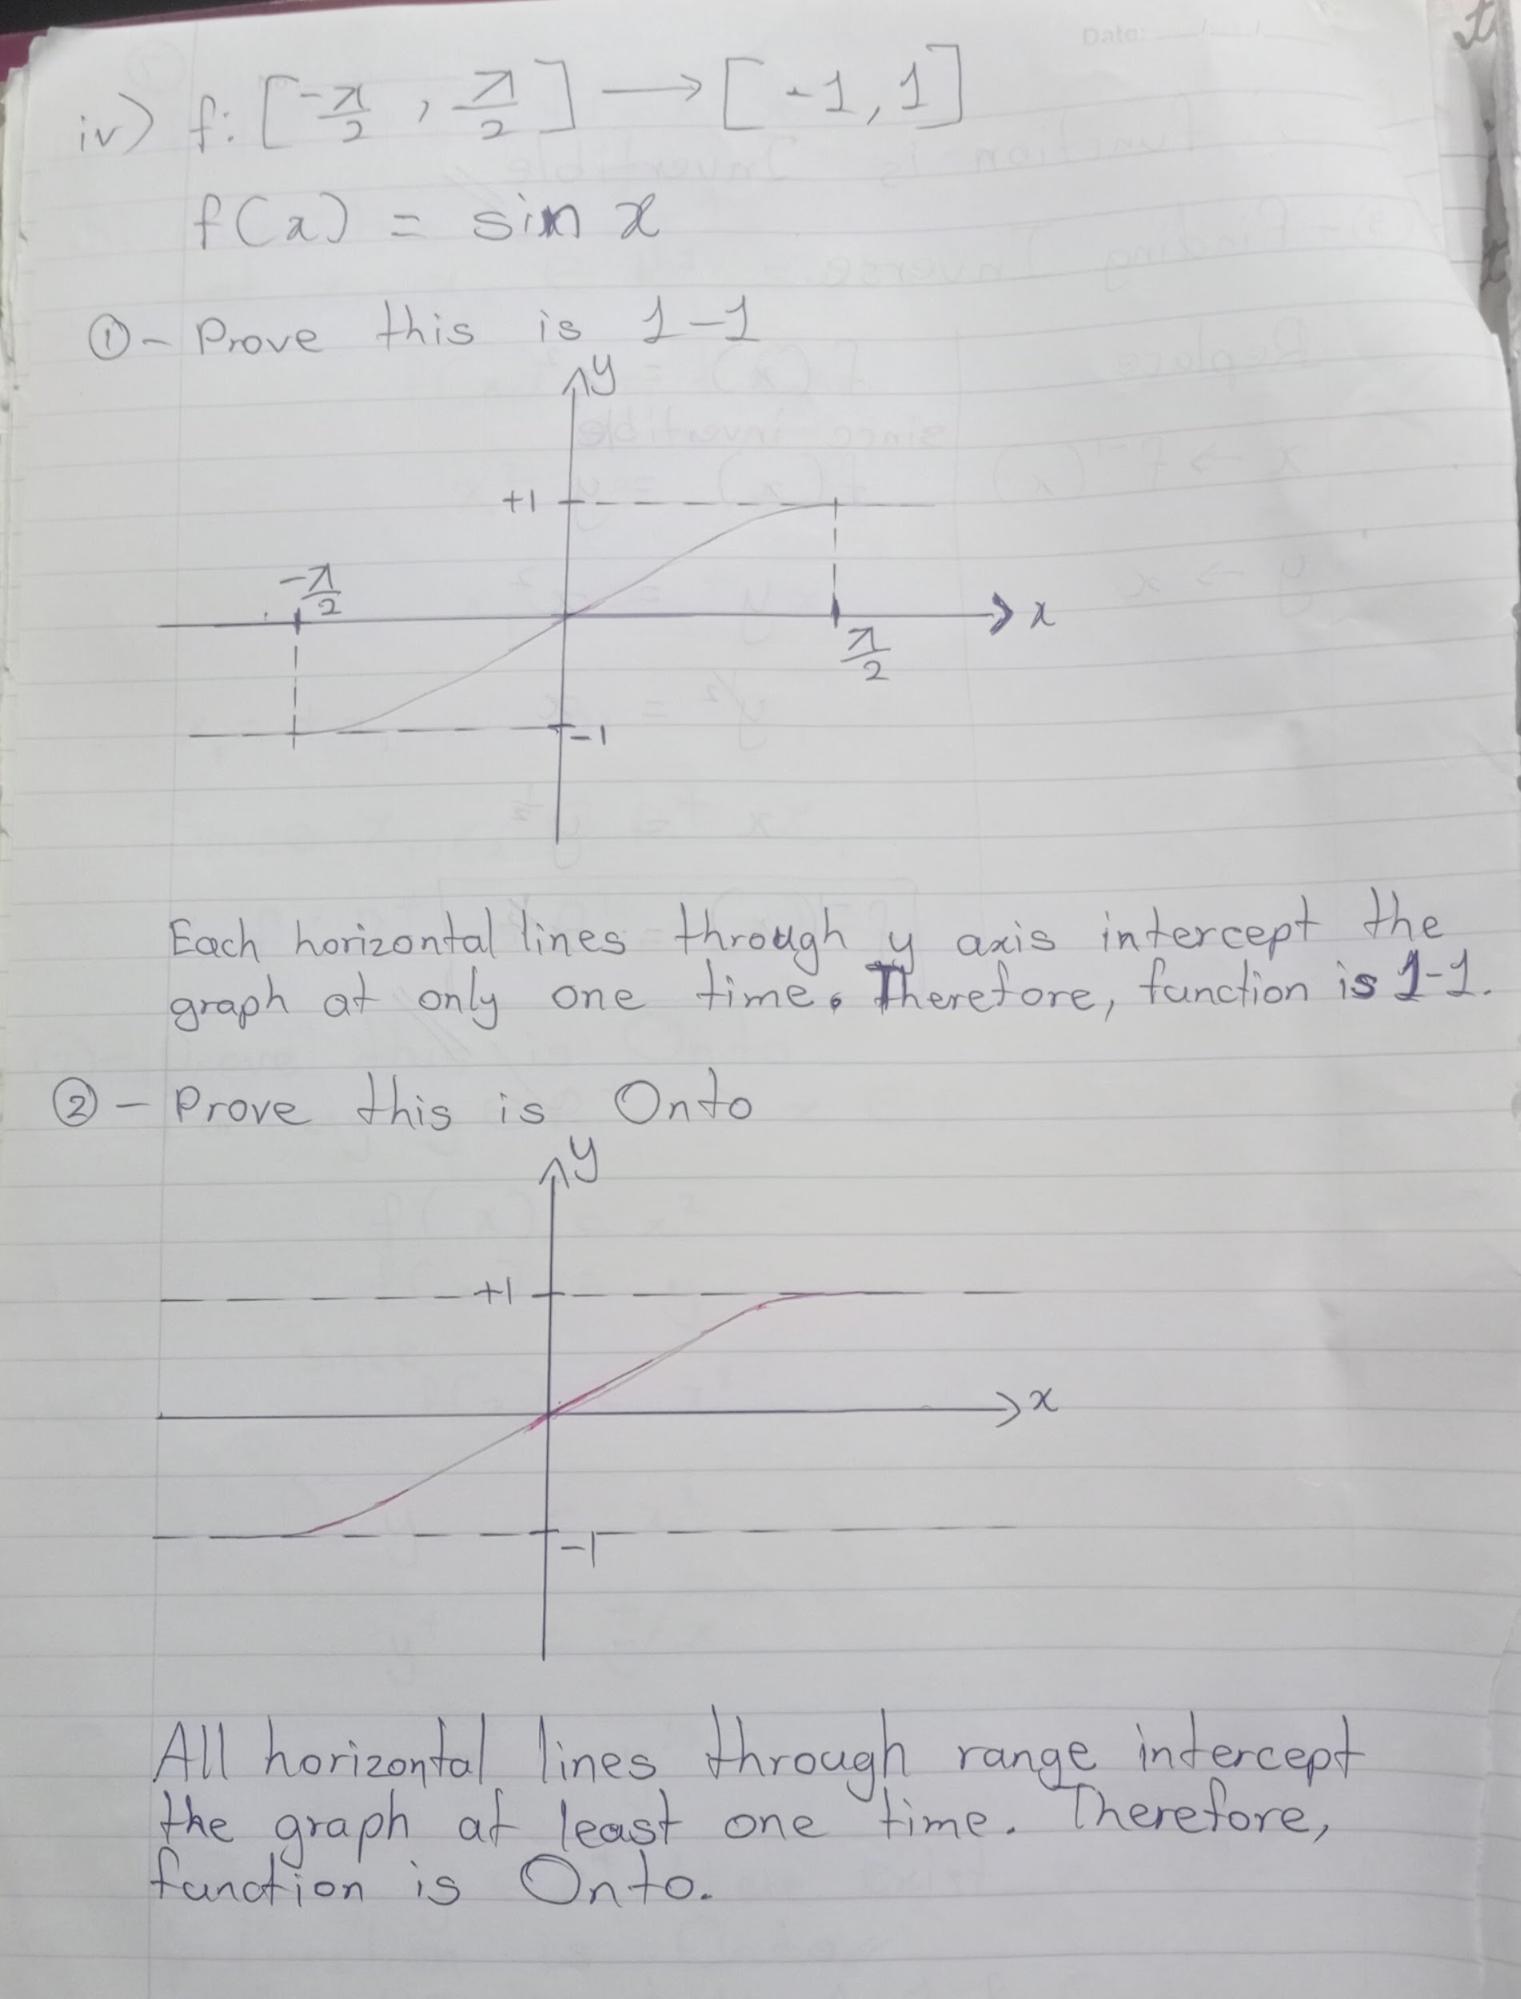 iv) f: [-π/2 , π/2] → [-1, 1]
f(x) = sin x
① - Prove this is 1-1
y
+1
-π/2
x
π/2
-1
Each horizontal lines through y axis intercept the
graph at only one time. Therefore, function is 1-1.
② - Prove this is Onto
y
+1
x
-1
All horizontal lines through range intercept
the graph at least one time. Therefore,
function is Onto.